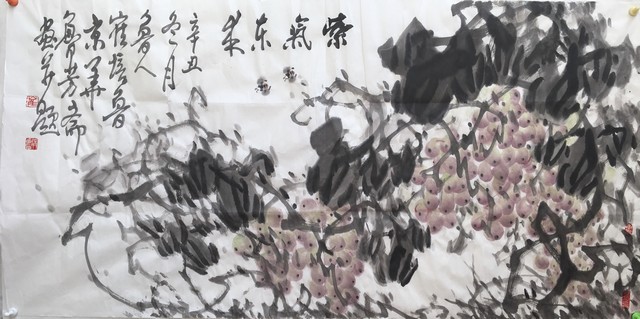 紫氣东来
辛丑
冬月
鲁人
崔長鲁
京華
鲁芳斋
畫并题